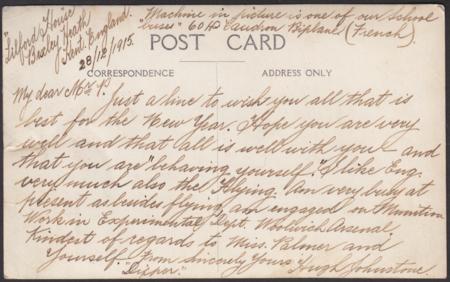 "Tilford House"
Bexley Heath
Kent England.
28/12/1915.
Machine in picture is one of our School
buses" 60 HP Caudron Biplane (French).
POST CARD
CORRESPONDENCE
ADDRESS ONLY
My dear Mr P. Just a line to wish you all that is
best for the New Year. Hope you are very
well and that all is well with you and
that you are "behaving yourself". I like Eng.
very much also the Flying. Am very busy at
present as besides flying am engaged in Munition
Work in Experimental Dept. Woolwich Arsenal,
Kindest of regards to Miss. Palmer and
Yourself. From sincerely Yours Hough Johnstone.
"Dipper."